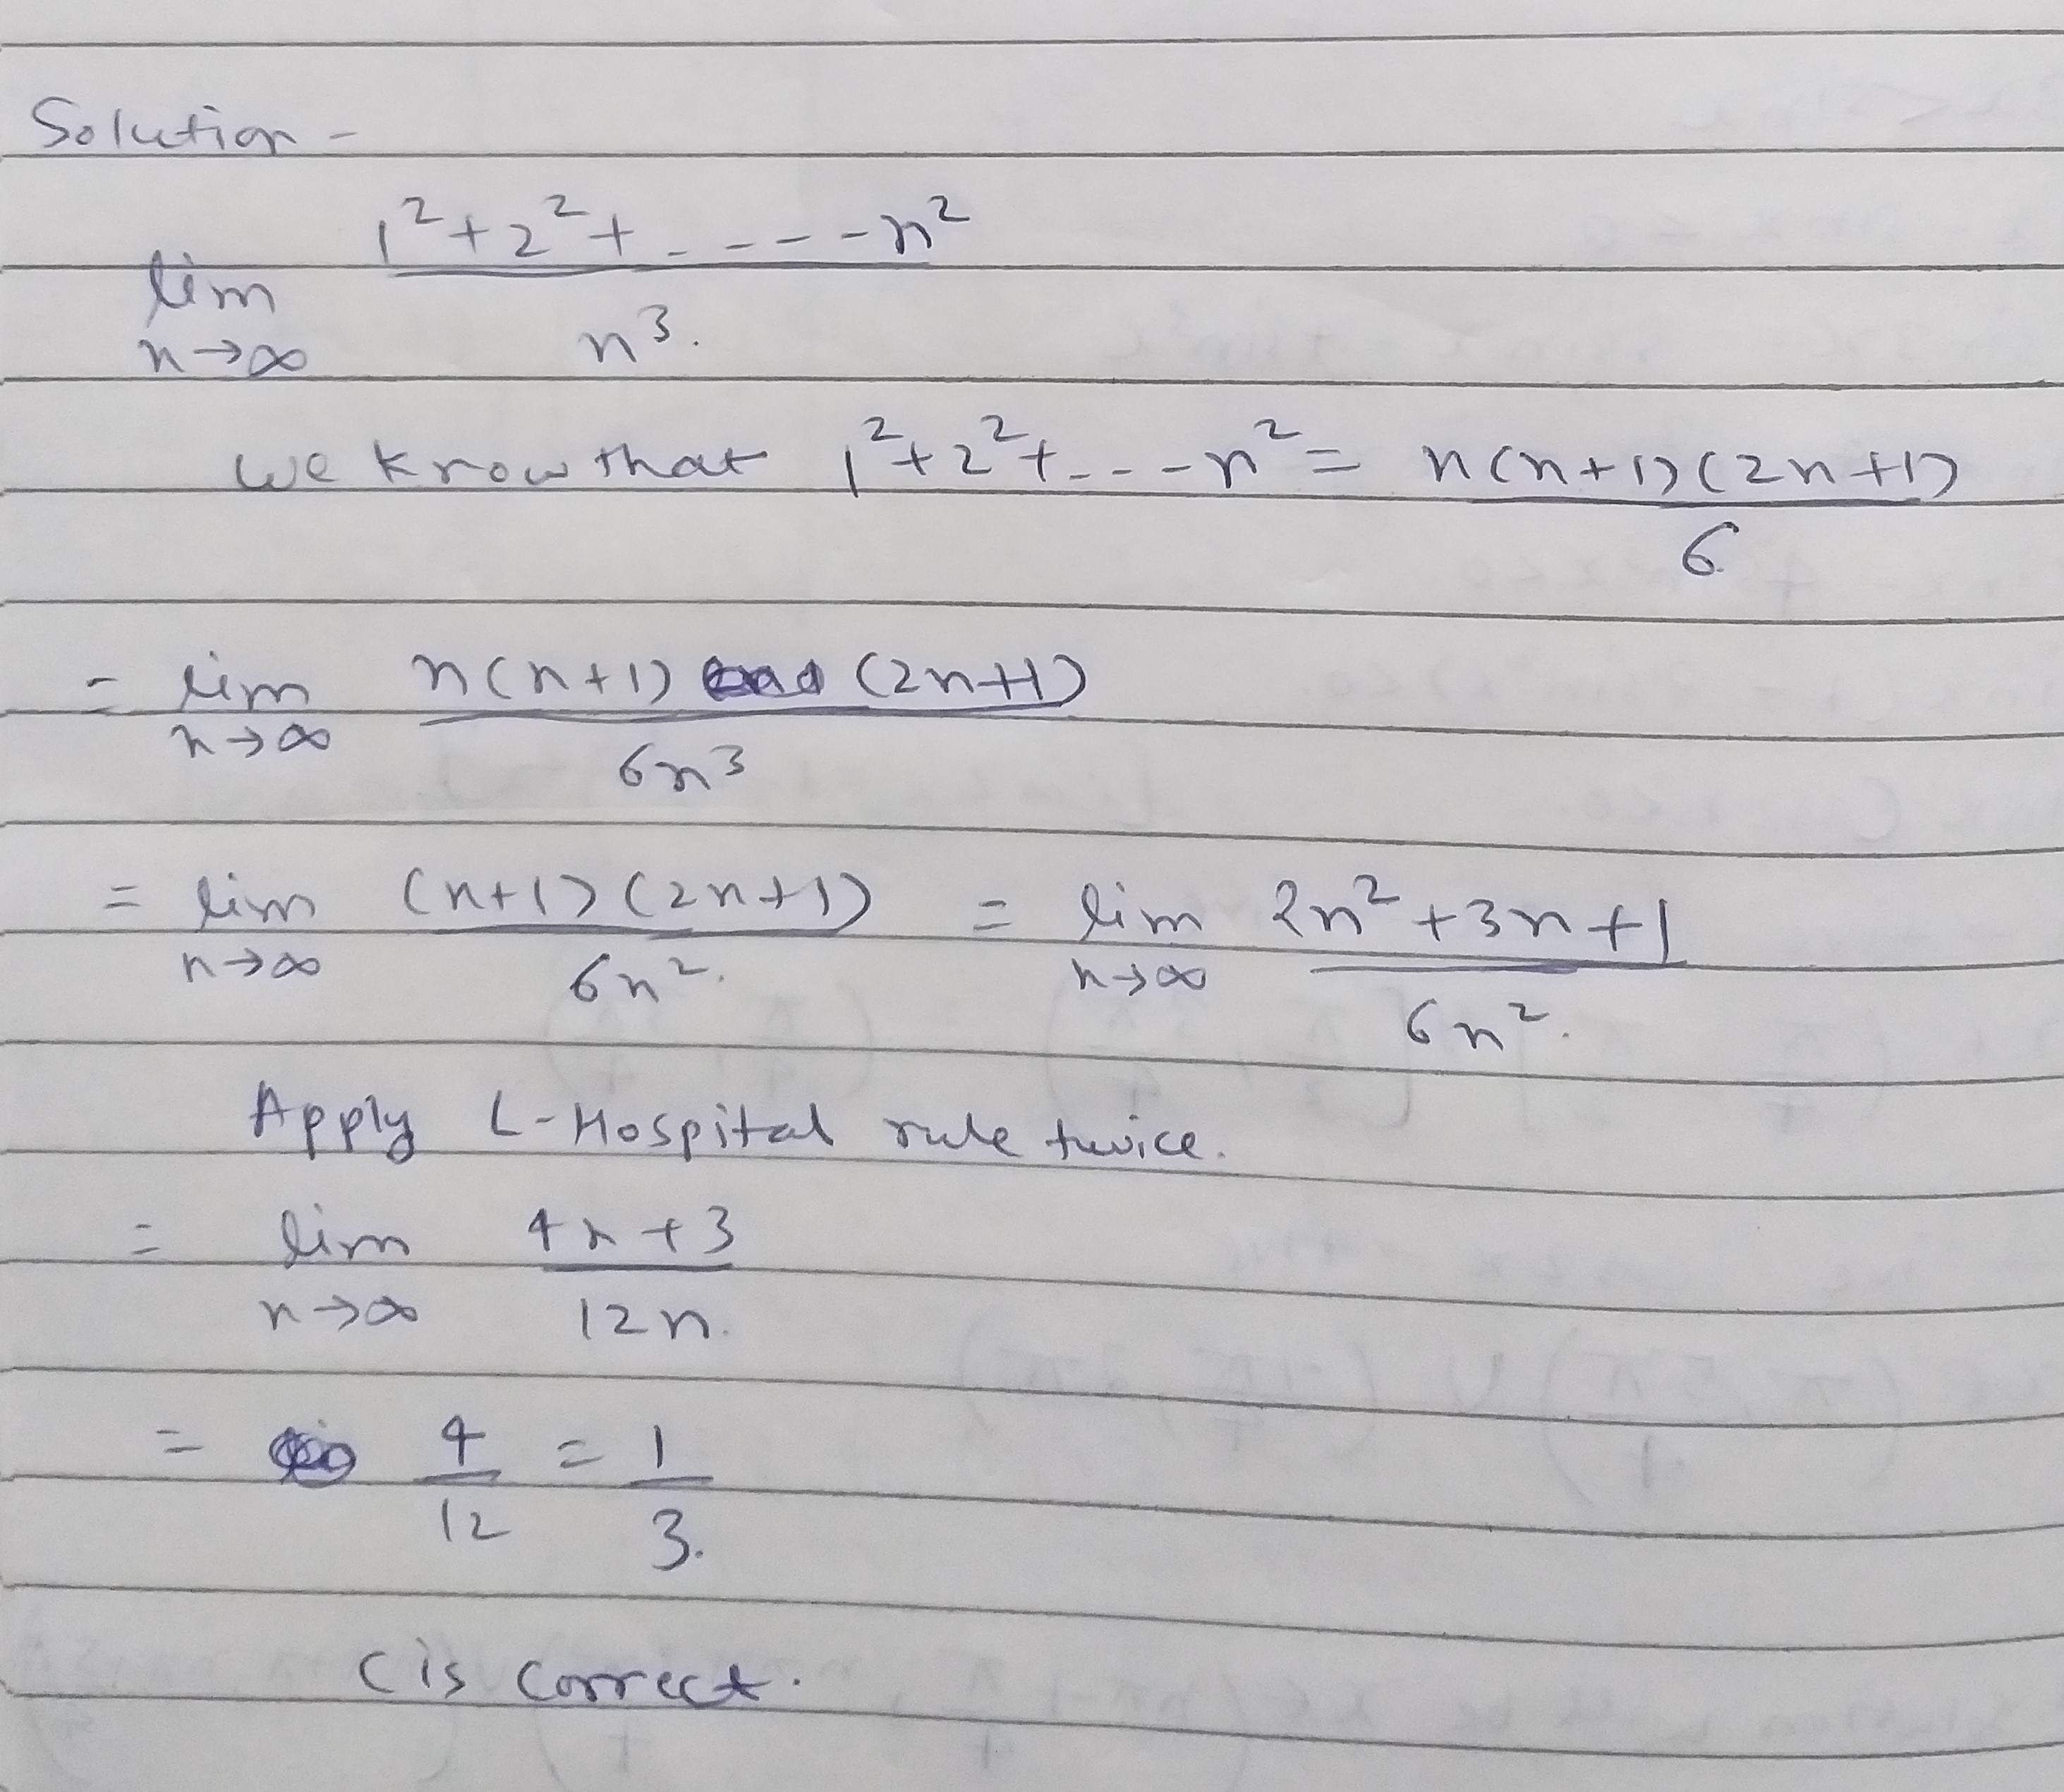 Solution -
lim n→∞ 1²+2²+-----n² / n³.
we know that 1²+2²+---n² = n(n+1)(2n+1) / 6
= lim n→∞ n(n+1) (2n+1) / 6n³
= lim n→∞ (n+1)(2n+1) / 6n². = lim n→∞ 2n²+3n+1 / 6n².
Apply L-Hospital rule twice.
= lim n→∞ 4n+3 / 12n.
= 4/12 = 1/3.
C is correct.